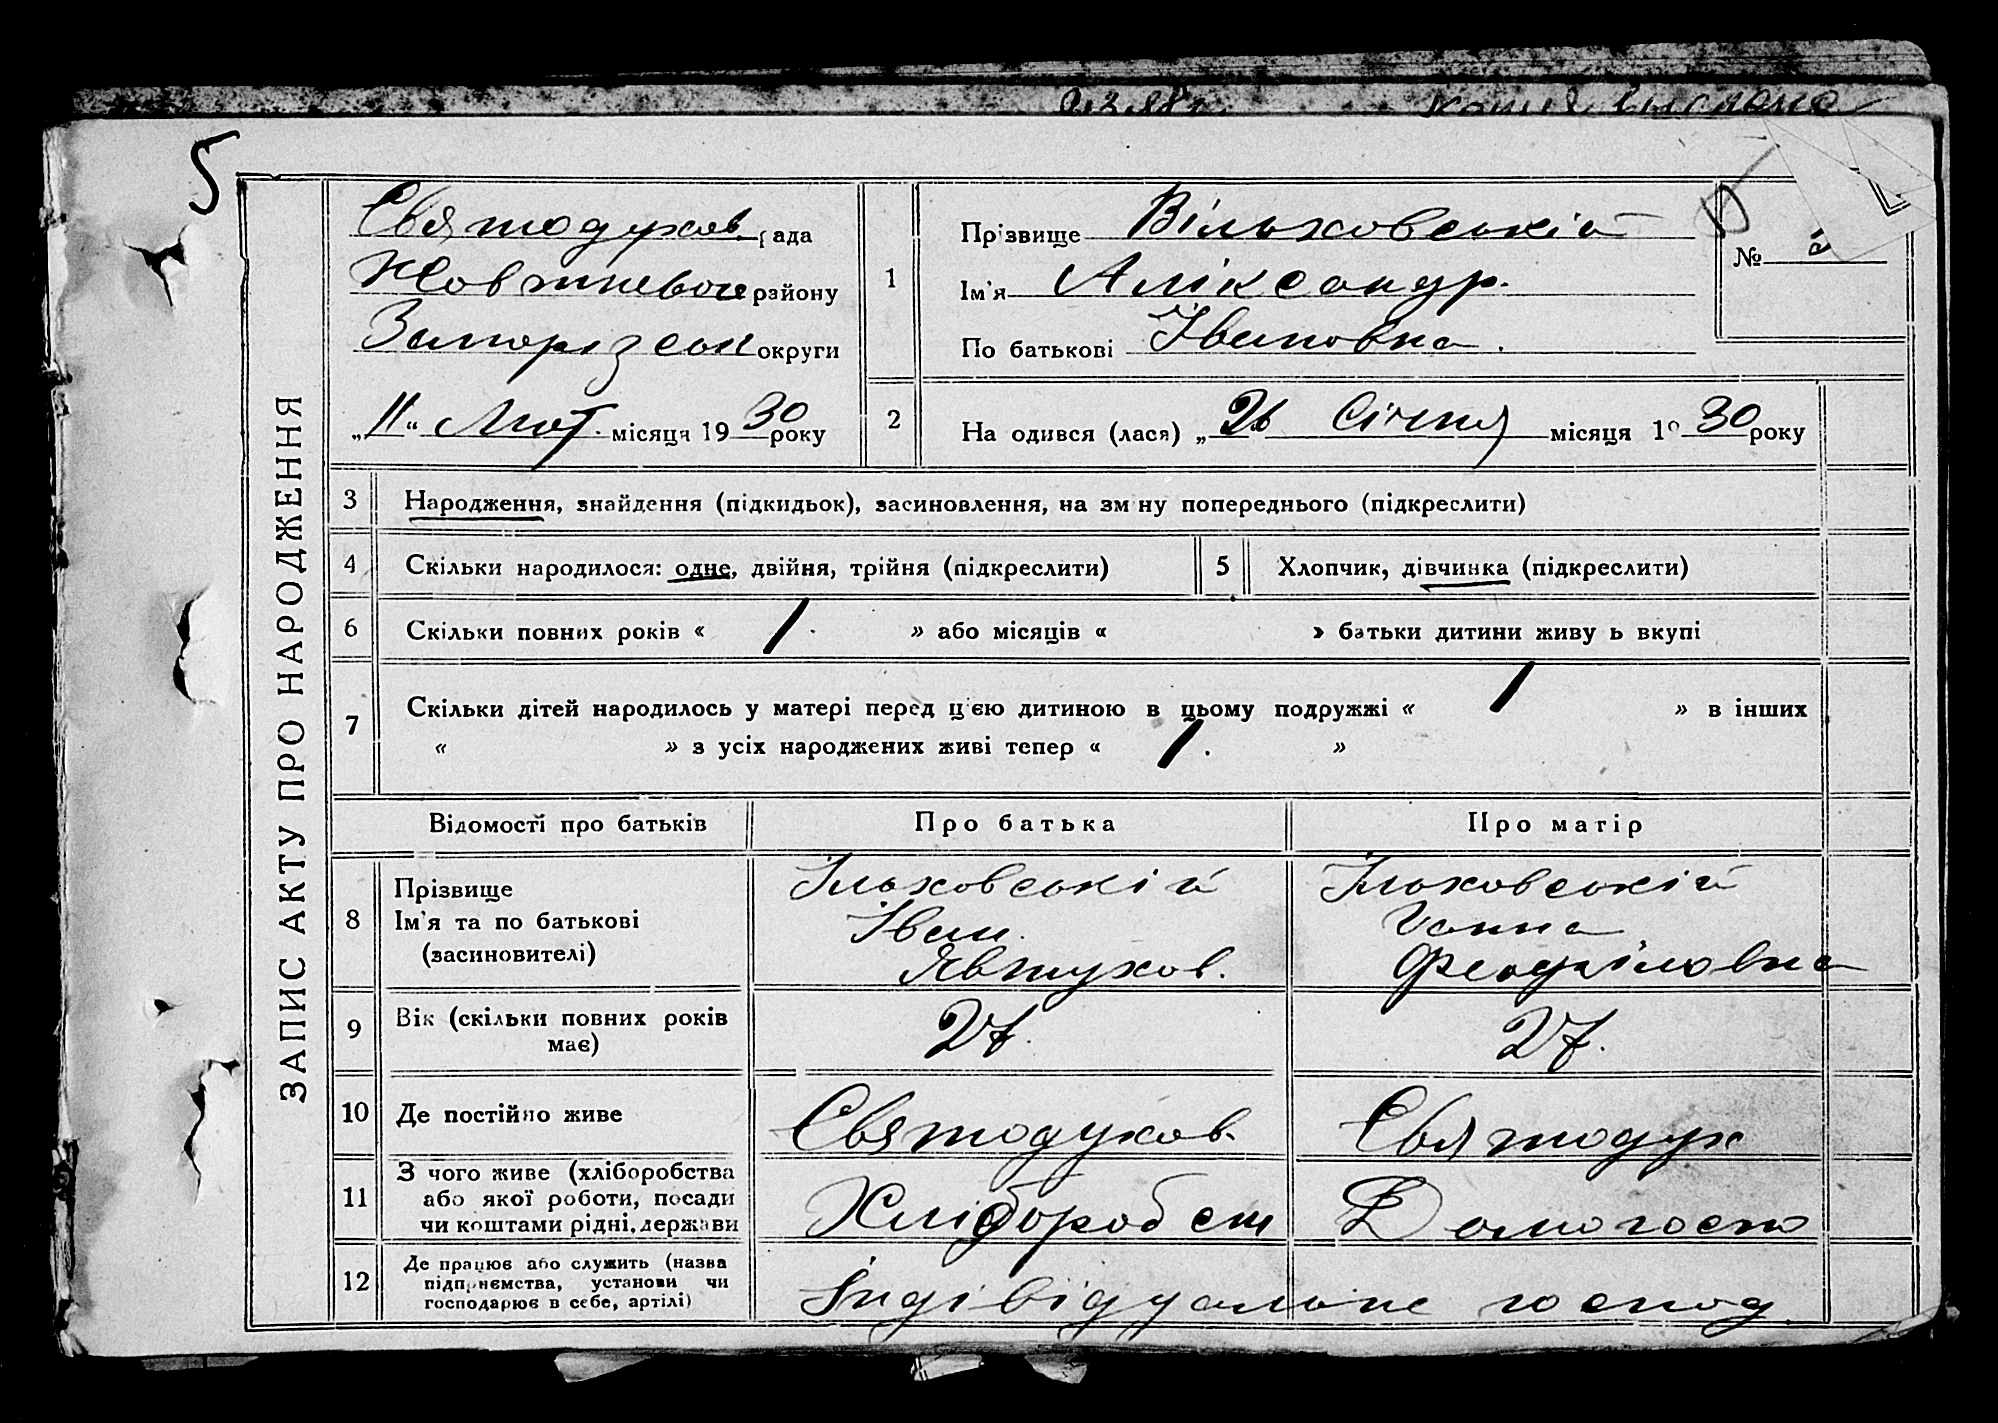 5
Святодухов. рада
Жовтневог району
Запорізськ округи
„11“ Лют. місяця 1930 року
ЗАПИС АКТУ ПРО НАРОДЖЕННЯ
1
Прізвище Вільховській
Ім'я Аліксандр.
По батькові Івановна.
№
2
На одився (лася) „26 Січня місяця 1930 року
3 Народження, знайдення (підкидьок), засиновлення, на зм ну попереднього (підкреслити)
4 Скільки народилося: одне, двійня, трійня (підкреслити)
5 Хлопчик, дівчинка (підкреслити)
6 Скільки повних років « / » або місяців « » батьки дитини живу ь вкупі
7 Скільки дітей народилось у матері перед ц'єю дитиною в цьому подружжі « / » в інших
« » з усіх народжених живі тепер « /. »
Відомості про батьків Про батька Про матір
8 Прізвище
Ім'я та по батькові
(засиновителі)
Ільховській
Іван.
Явтухов.
Ільховській
Ганна
Феодріловна
9 Вік (скільки повних років
має)
27.
27.
10 Де постійно живе
Святодухов.
Святодух
11 З чого живе (хліборобства
або якої роботи, посади
чи коштами рідні, держави
Хлібороб ст
Домогосп
12 Де працює або служить (назва
підприємства, установи чи
господарює в себе, артілі)
Індівідуальне господ